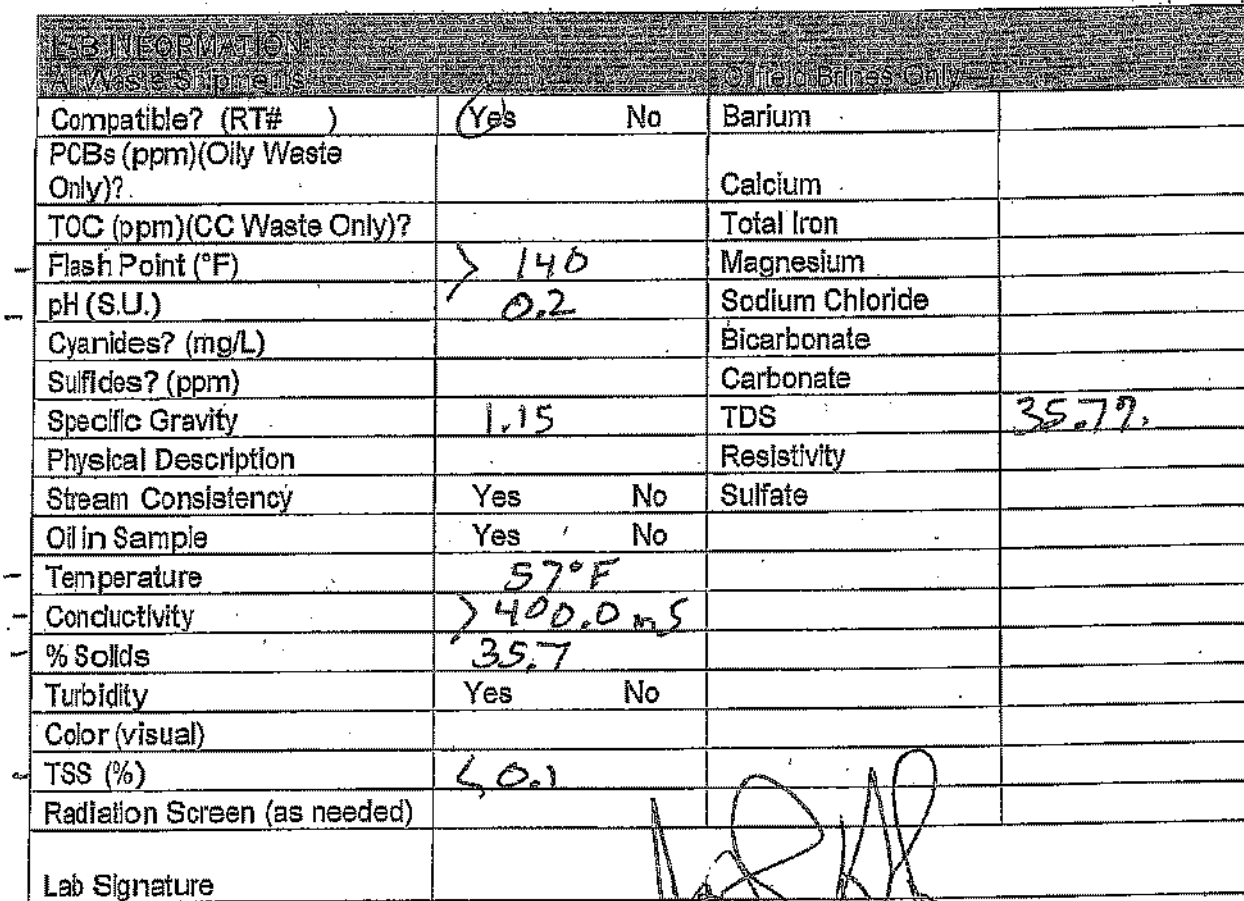 LAB INFORMATION
All Waste Shipments Oilfield Brines Only
Compatible? (RT# ) Yes No Barium
PCBs (ppm)(Oily Waste
Only)? Calcium
TOC (ppm)(CC Waste Only)? Total Iron
Flash Point (°F) > 140 Magnesium
pH (S.U.) 0.2 Sodium Chloride
Cyanides? (mg/L) Bicarbonate
Sulfides? (ppm) Carbonate
Specific Gravity 1.15 TDS 35.7%
Physical Description Resistivity
Stream Consistency Yes No Sulfate
Oil in Sample Yes No
Temperature 57°F
Conductivity > 400.0 mS
% Solids 35.7
Turbidity Yes No
Color (visual)
TSS (%) < 0.1
Radiation Screen (as needed)
Lab Signature